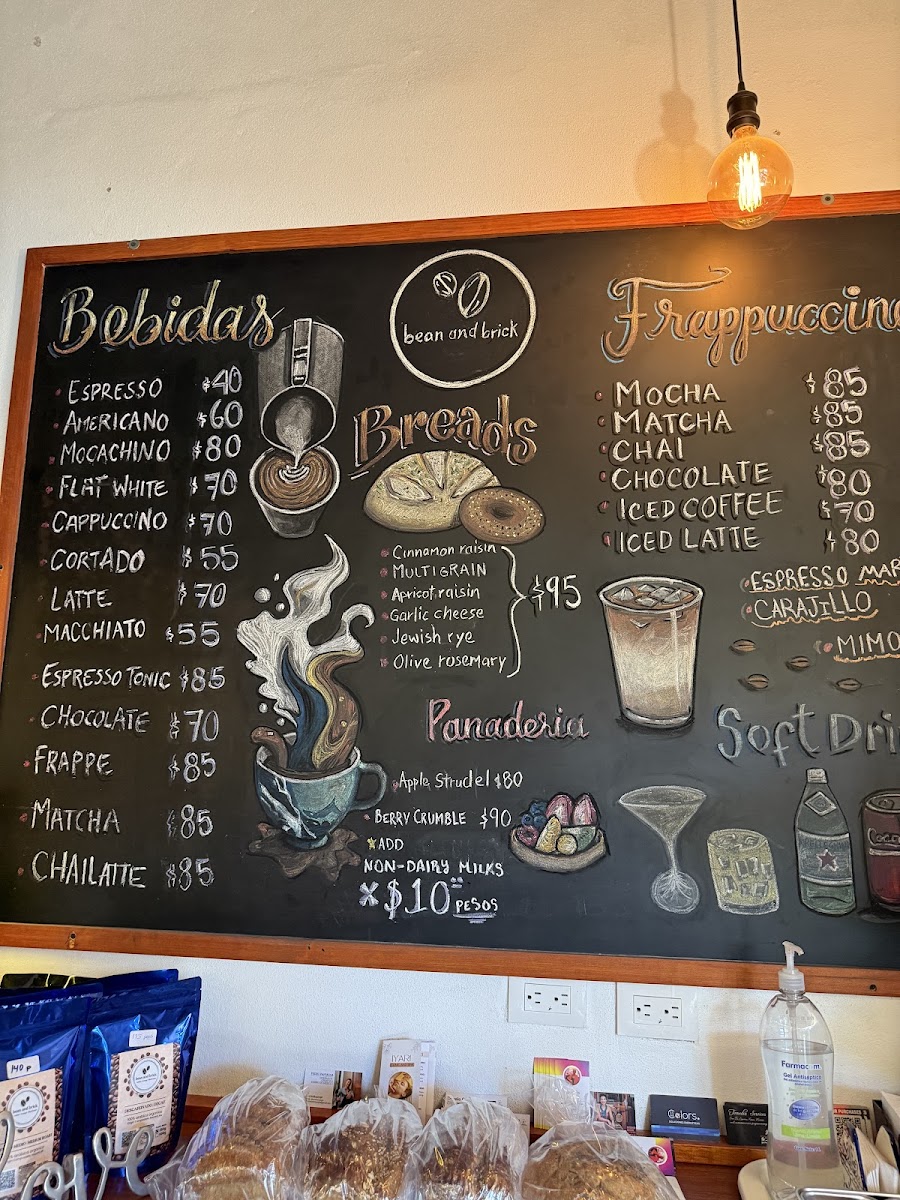 bean and brick
Bebidas
ESPRESSO $40
AMERICANO $60
MOCACHINO $80
FLAT WHITE $70
CAPPUCCINO $70
CORTADO $55
LATTE $70
MACCHIATO $55
ESPRESSO TONIC $85
CHOCOLATE $70
FRAPPE $85
MATCHA $85
CHAI LATTE $85
Breads
Cinnamon raisin
MULTIGRAIN
Apricot raisin
Garlic cheese
Jewish rye
Olive rosemary
$95
Panaderia
Apple Strudel $80
BERRY CRUMBLE $90
ADD
NON-DAIRY MILKS
x $10 PESOS
Frappuccino
MOCHA $85
MATCHA $85
CHAI $85
CHOCOLATE $80
ICED COFFEE $70
ICED LATTE $80
ESPRESSO MAR
CARAJILLO
MIMO
Soft Dri
140 P
bean and brick
bean and brick
IYARI
Colors.
Farmacom
Gel Antiséptico